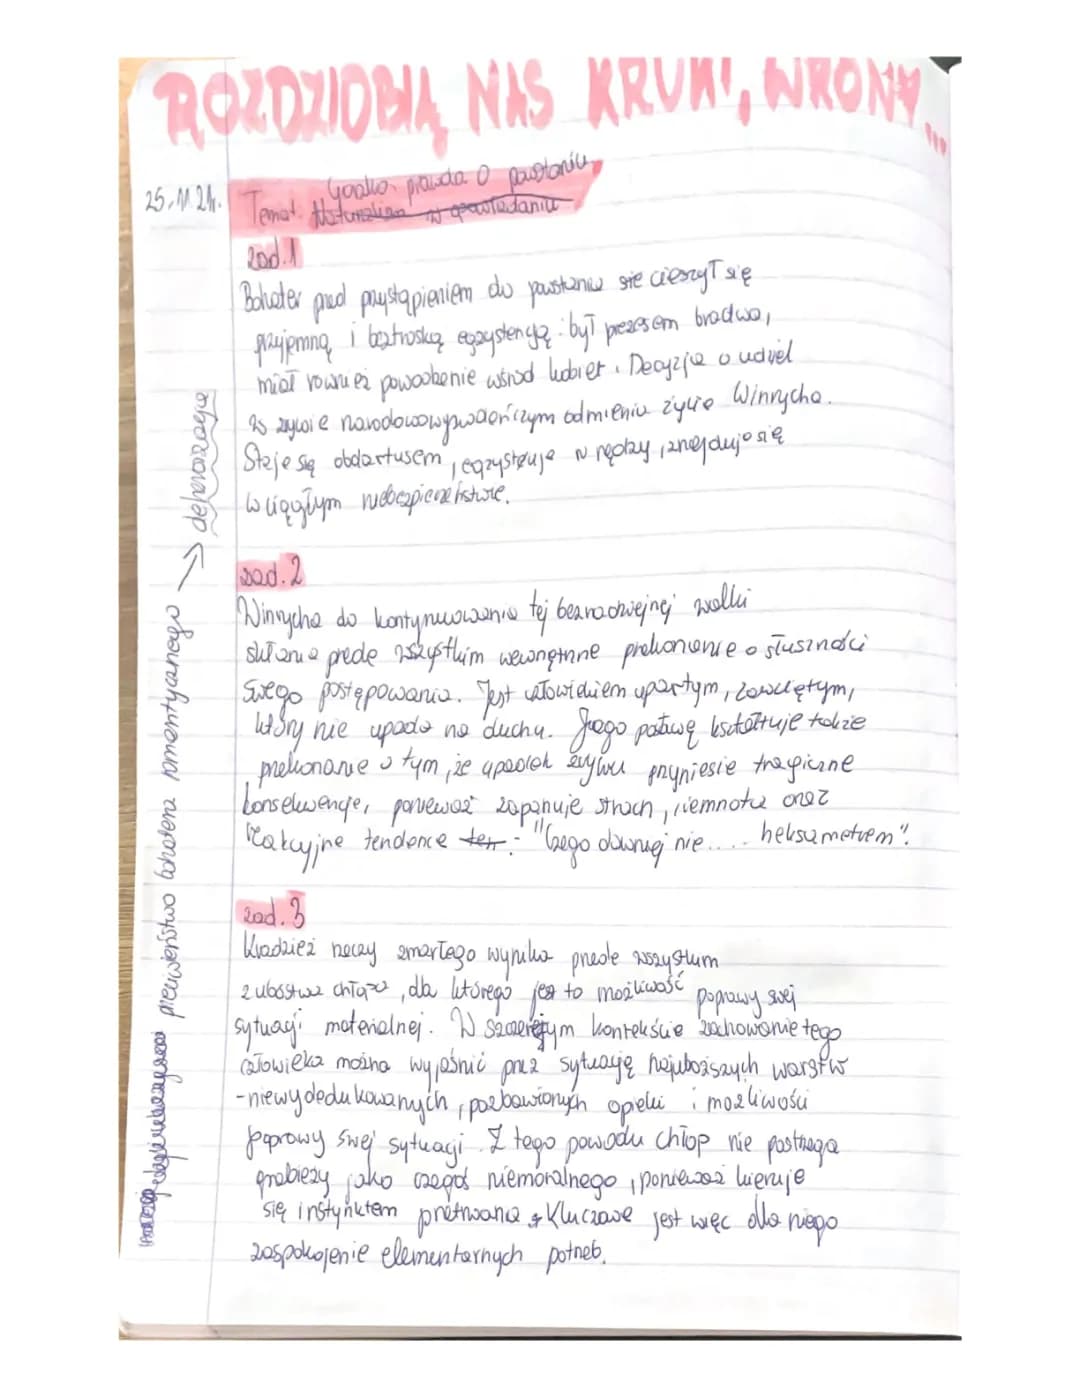 ROZDZIOBIĄ NAS KRUKI, WRONY...
25.11.21r. Temat: Gorzka prawda o powstaniu
Naturalizm w opowiadaniu
zad.1
Bohater pred przystąpieniem do powstania sie cieszył się
przyjemną i beztroską egzystencją: był prezesem bractwa,
miał również powodzenie wśród kobiet. Decyzja o udziel
w zrywie narodowowyzwoleńczym odmienia życie Winrycha.
Staje się obdartusem, egzystuje w nędzy, znajduje się
w ciągłym niebezpieczeństwie.
zad.2
Winrycha do kontynuowania tej beznadziejnej walki
skłania prede wszystkim wewnętrzne prekonanie o słuszności
swego postępowania. Jest człowiekiem upartym, zawziętym,
który nie upada na duchu. Jego postawę kształtuje także
prekonanie o tym, że upadek zrywu przyniesie tragiczne
konsekwencje, ponieważ zapanuje strach, ciemnota oraz
reakcyjne tendencje: "Czego dawniej nie..... heksametrem".
zad.3
Kradzież rzeczy zmarłego wynika prede wszystkim
z ubóstwa chłopa, dla którego jest to możliwość poprawy swej
sytuacji materialnej. W szerszym kontekście zachowanie tego
człowieka można wyjaśnić prez sytuację najuboższych warstw
-niewydedukowanych, pozbawionych opieki i możliwości
poprawy swej sytuacji. Z tego powodu chłop nie postrzega
grabieży jako czegoś niemoralnego, ponieważ kieruje
się instynktem pretrwania. Kluczowe jest więc dla niego
zaspokojenie elementarnych potreb.
przeciwieństwo bohatera romantycznego → deheroizacja